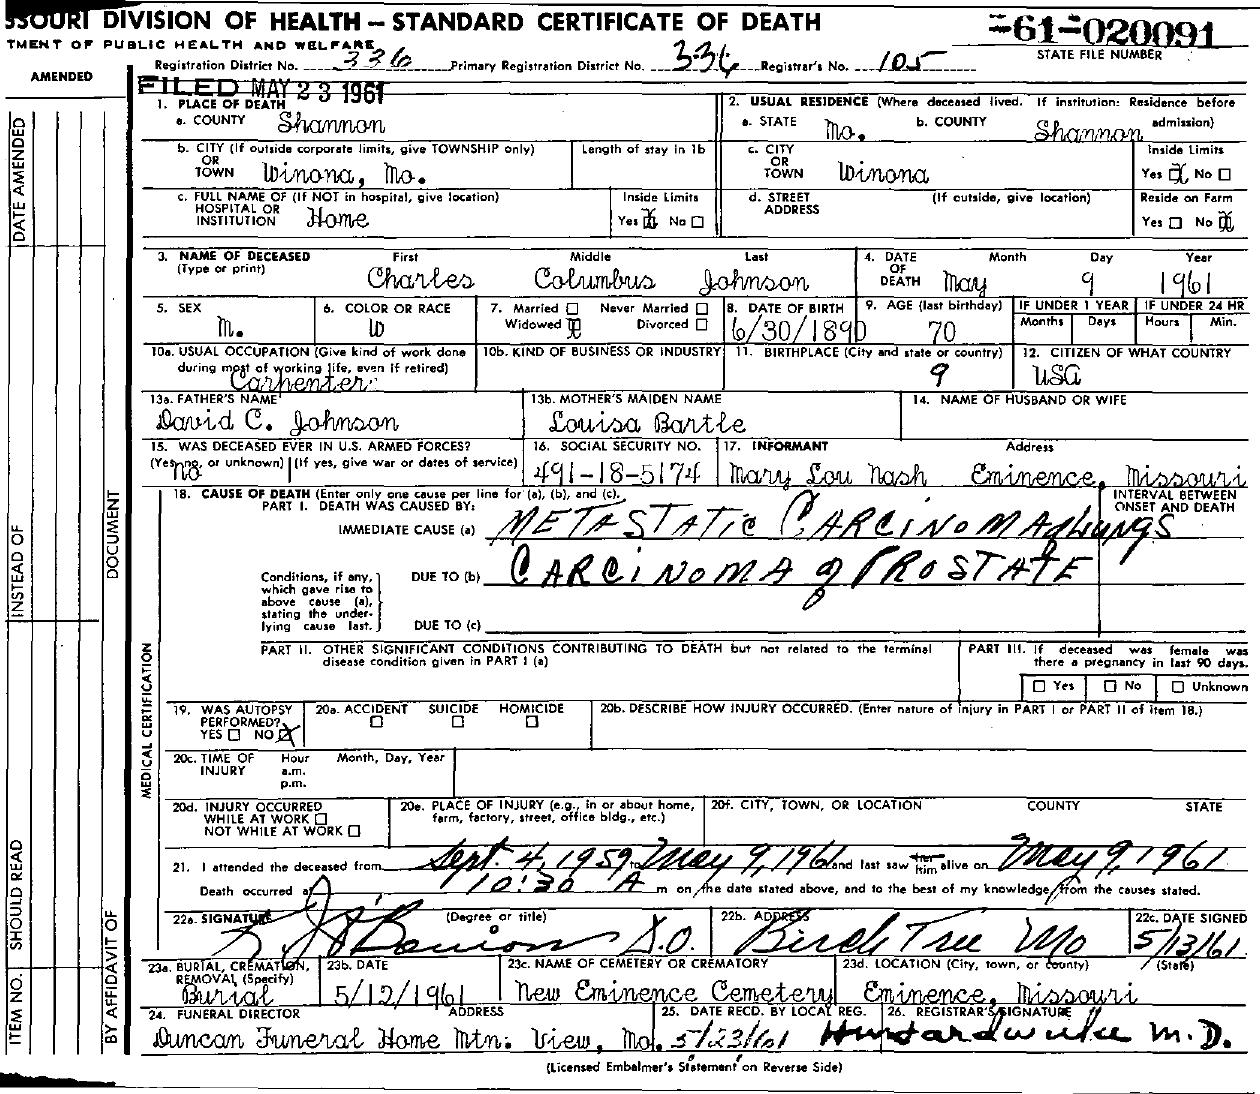 SSOURI DIVISION OF HEALTH — STANDARD CERTIFICATE OF DEATH
-61-020091
TMENT OF PUBLIC HEALTH AND WELFARE
STATE FILE NUMBER
Registration District No. 336 Primary Registration District No. 336 Registrar's No. 105
AMENDED
FILED MAY 23 1961
1. PLACE OF DEATH
a. COUNTY Shannon
2. USUAL RESIDENCE (Where deceased lived. If institution: Residence before admission)
a. STATE Mo. b. COUNTY Shannon
b. CITY (If outside corporate limits, give TOWNSHIP only) OR TOWN Winona, Mo.
Length of stay in 1b
c. CITY OR TOWN Winona
Inside Limits
Yes X No
c. FULL NAME OF (If NOT in hospital, give location) HOSPITAL OR INSTITUTION Home
Inside Limits
Yes X No
d. STREET ADDRESS (If outside, give location)
Reside on Farm
Yes No X
3. NAME OF DECEASED (Type or print)
First Middle Last
Charles Columbus Johnson
4. DATE OF DEATH Month Day Year
May 9 1961
5. SEX M.
6. COLOR OR RACE W
7. Married Never Married
Widowed X Divorced
8. DATE OF BIRTH 6/30/1890
9. AGE (last birthday) 70
IF UNDER 1 YEAR Months Days
IF UNDER 24 HR Hours Min.
10a. USUAL OCCUPATION (Give kind of work done during most of working life, even if retired) Carpenter
10b. KIND OF BUSINESS OR INDUSTRY
11. BIRTHPLACE (City and state or country) ?
12. CITIZEN OF WHAT COUNTRY USA
13a. FATHER'S NAME David C. Johnson
13b. MOTHER'S MAIDEN NAME Louisa Bartle
14. NAME OF HUSBAND OR WIFE
15. WAS DECEASED EVER IN U.S. ARMED FORCES?
(Yes, no, or unknown) (If yes, give war or dates of service) No
16. SOCIAL SECURITY NO. 491-18-5174
17. INFORMANT Address
Mary Lou Nash Eminence, Missouri
18. CAUSE OF DEATH (Enter only one cause per line for (a), (b), and (c).
PART I. DEATH WAS CAUSED BY:
INTERVAL BETWEEN ONSET AND DEATH
IMMEDIATE CAUSE (a) METASTATIC CARCINOMA LUNGS
Conditions, if any, which gave rise to above cause (a), stating the underlying cause last.
DUE TO (b) CARCINOMA of PROSTATE
DUE TO (c)
PART II. OTHER SIGNIFICANT CONDITIONS CONTRIBUTING TO DEATH but not related to the terminal disease condition given in PART I (a)
PART III. If deceased was female was there a pregnancy in last 90 days.
Yes No Unknown
19. WAS AUTOPSY PERFORMED?
YES NO X
20a. ACCIDENT SUICIDE HOMICIDE
20b. DESCRIBE HOW INJURY OCCURRED. (Enter nature of injury in PART I or PART II of item 18.)
20c. TIME OF INJURY Hour a.m. p.m. Month, Day, Year
20d. INJURY OCCURRED
WHILE AT WORK
NOT WHILE AT WORK
20e. PLACE OF INJURY (e.g., in or about home, farm, factory, street, office bldg., etc.)
20f. CITY, TOWN, OR LOCATION COUNTY STATE
21. I attended the deceased from Sept. 4, 1959 to May 9, 1961 and last saw her him alive on May 9, 1961
Death occurred at 10:30 A m on the date stated above, and to the best of my knowledge, from the causes stated.
22a. SIGNATURE (Degree or title) D.O.
22b. ADDRESS Birch Tree Mo
22c. DATE SIGNED 5/13/61
23a. BURIAL, CREMATION, REMOVAL (Specify) Burial
23b. DATE 5/12/1961
23c. NAME OF CEMETERY OR CREMATORY New Eminence Cemetery
23d. LOCATION (City, town, or county) (State) Eminence, Missouri
24. FUNERAL DIRECTOR ADDRESS
Duncan Funeral Home Mtn. View, Mo.
25. DATE RECD. BY LOCAL REG. 5/23/61
26. REGISTRAR'S SIGNATURE M.D.
(Licensed Embalmer's Statement on Reverse Side)
DATE AMENDED
INSTEAD OF
DOCUMENT
MEDICAL CERTIFICATION
SHOULD READ
ITEM NO.
BY AFFIDAVIT OF